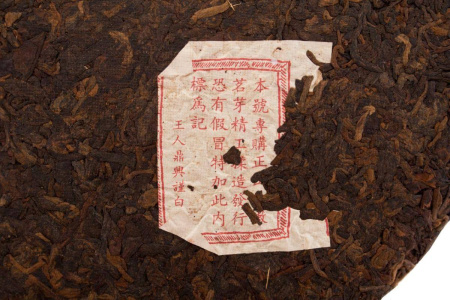 本號專購正
茗芽精工 造發行
恐有假冒特加此內
標為記
王人鼎興謹白